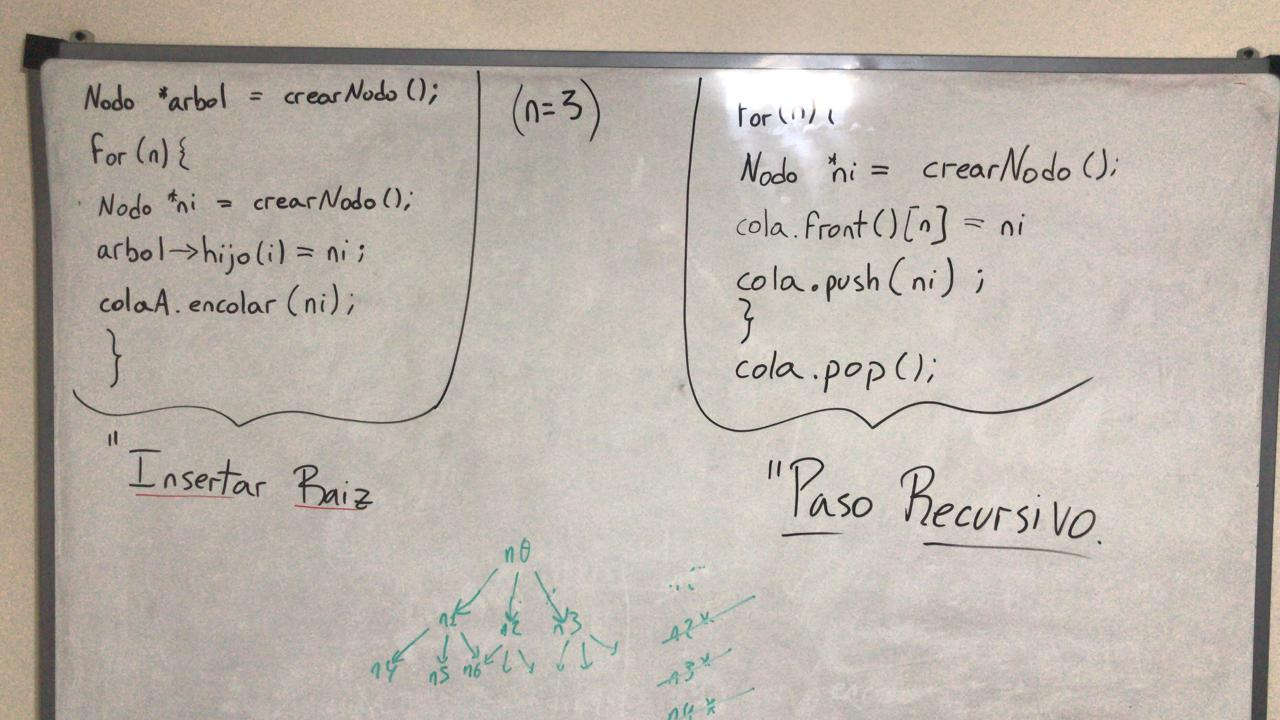 Nodo *arbol = crearNodo();
for(n){
Nodo *ni = crearNodo();
arbol→hijo(i) = ni;
colaA.encolar(ni);
}
"Insertar Raiz
(n=3)
for(n){
Nodo *ni = crearNodo();
cola.front()[n] = ni
cola.push(ni);
}
cola.pop();
"Paso Recursivo.
n0
n1 n2 n3
n4 n5 n6
n2*
n3*
n4*